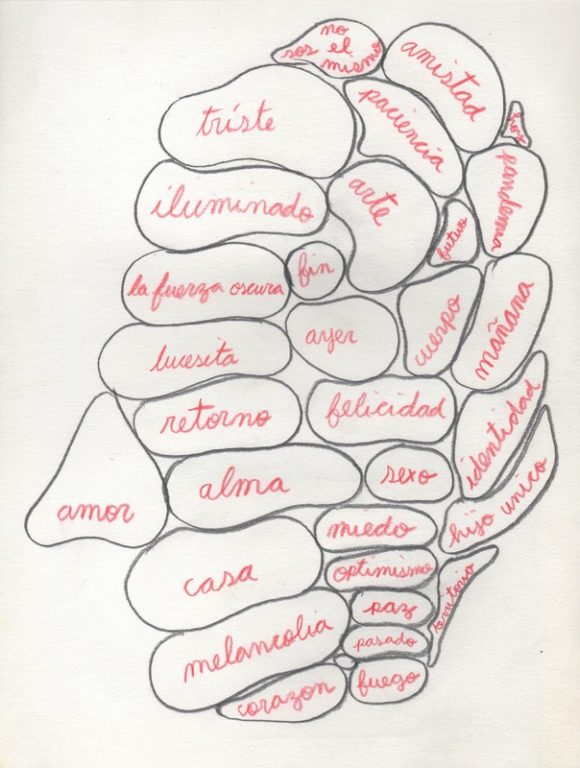 no
sos el
mismo
amistad
triste
paciencia
hoy
pandemia
iluminado
arte
futuro
la fuerza oscura
fin
ayer
cuerpo
mañana
lucesita
retorno
felicidad
identidad
amor
alma
sexo
hijo unico
miedo
casa
optimismo
territorio
paz
melancolia
pasado
corazon
fuego